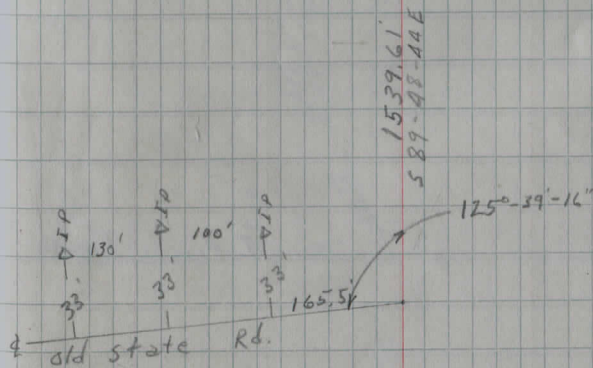 1539.61'
S 89-48-44E
125°-39'-16"
IP
IP
IP
130'
100'
33'
33'
33'
165.5'
Old State Rd.